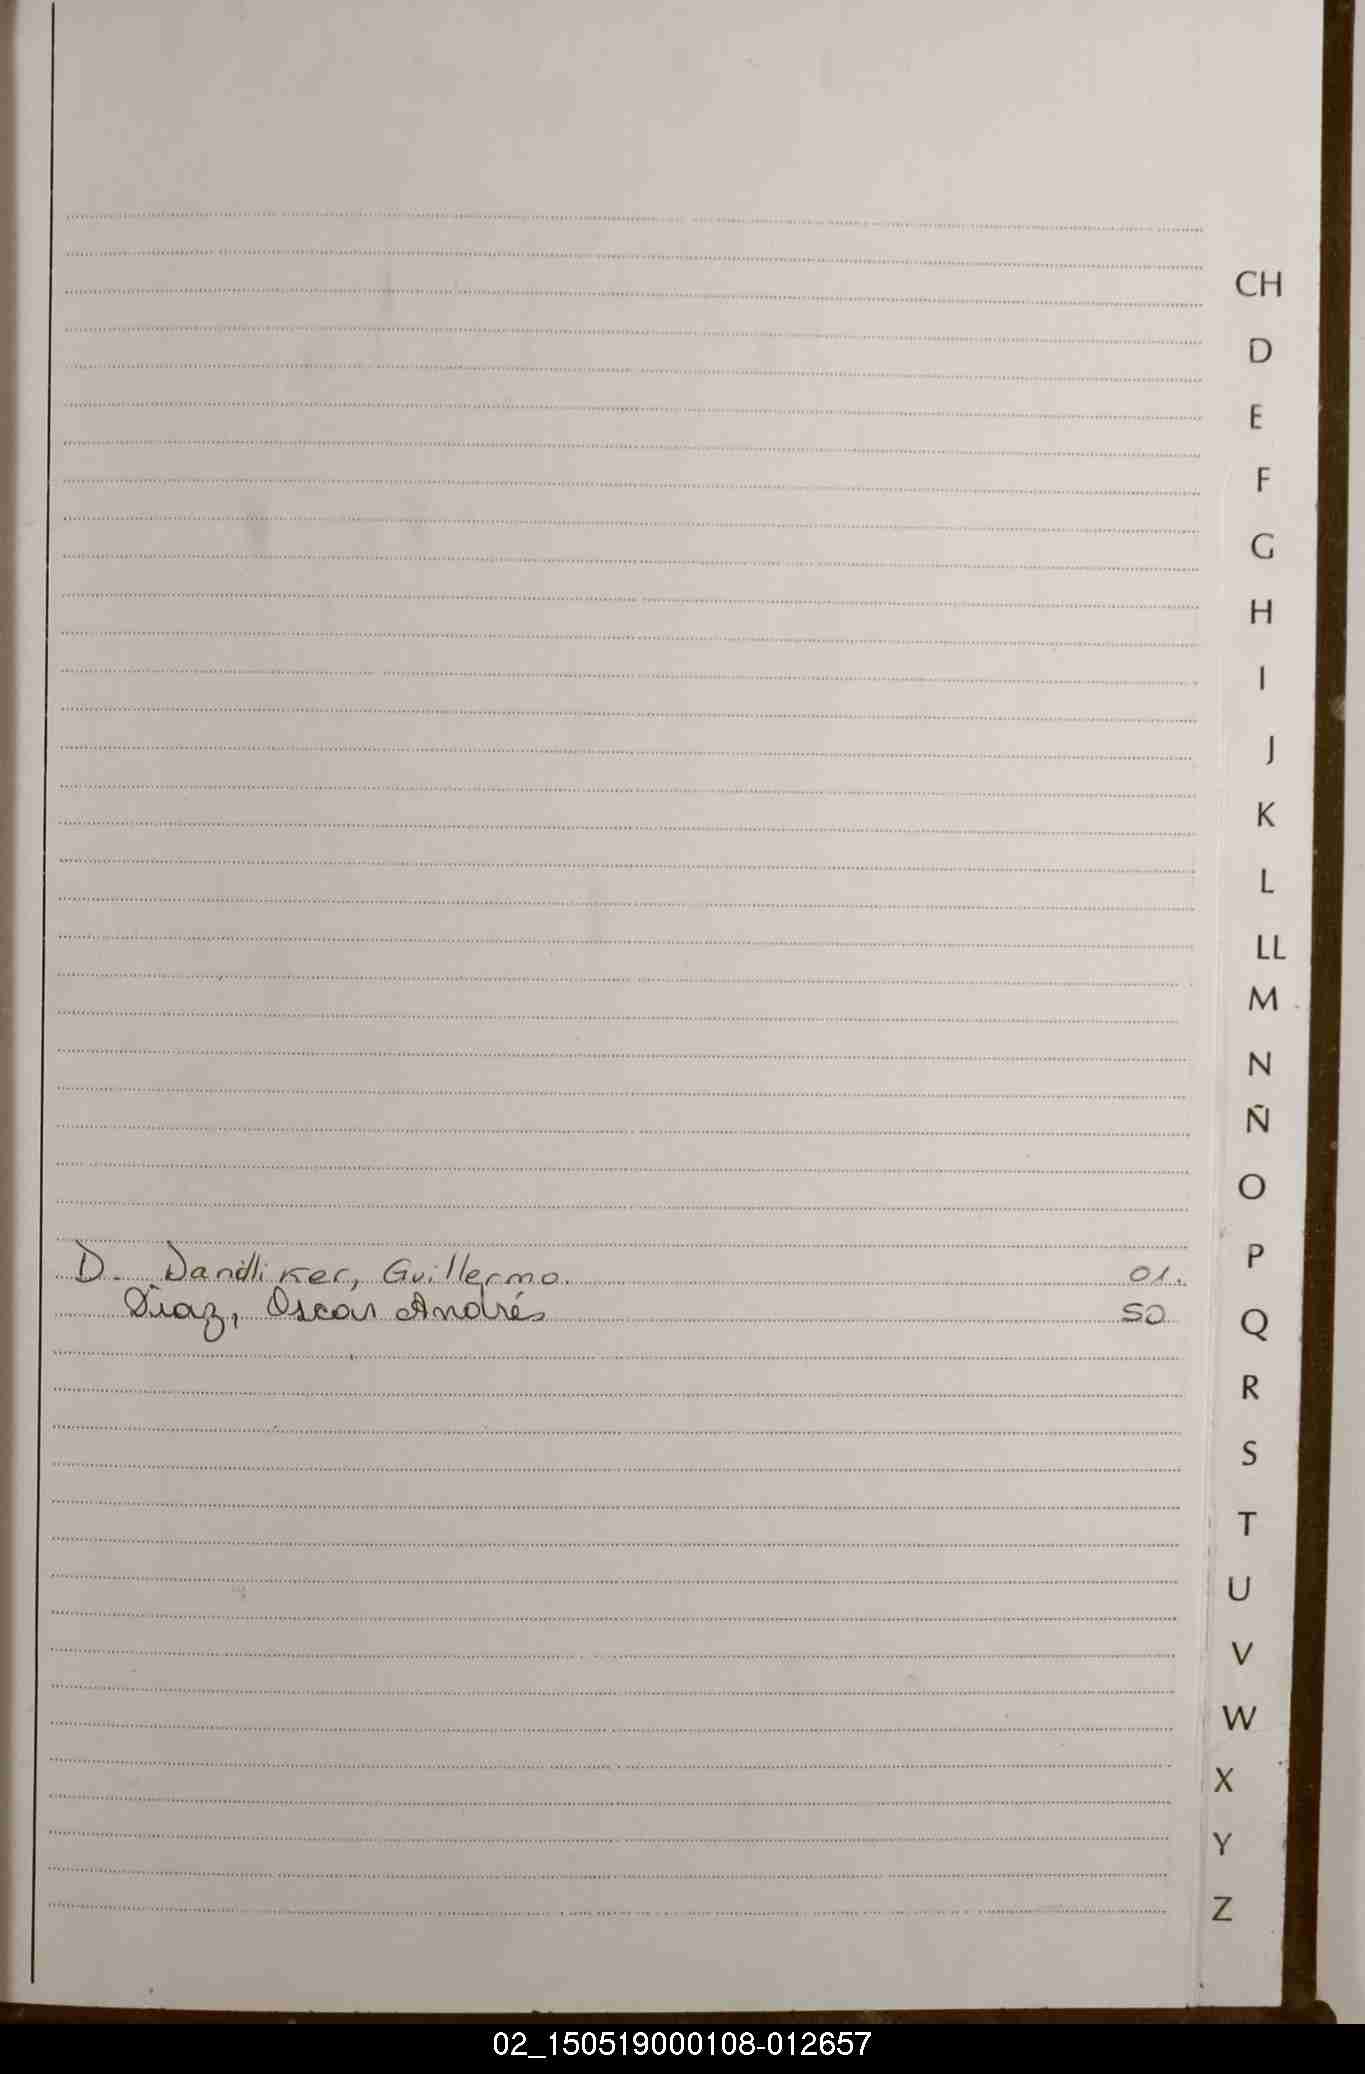 CH
D
E
F
G
H
I
J
K
L
LL
M
N
Ñ
O
P
D. Dandliker, Guillermo. 01.
Diaz, Oscar Andrés 50
Q
R
S
T
U
V
W
X
Y
Z
02_150519000108-012657